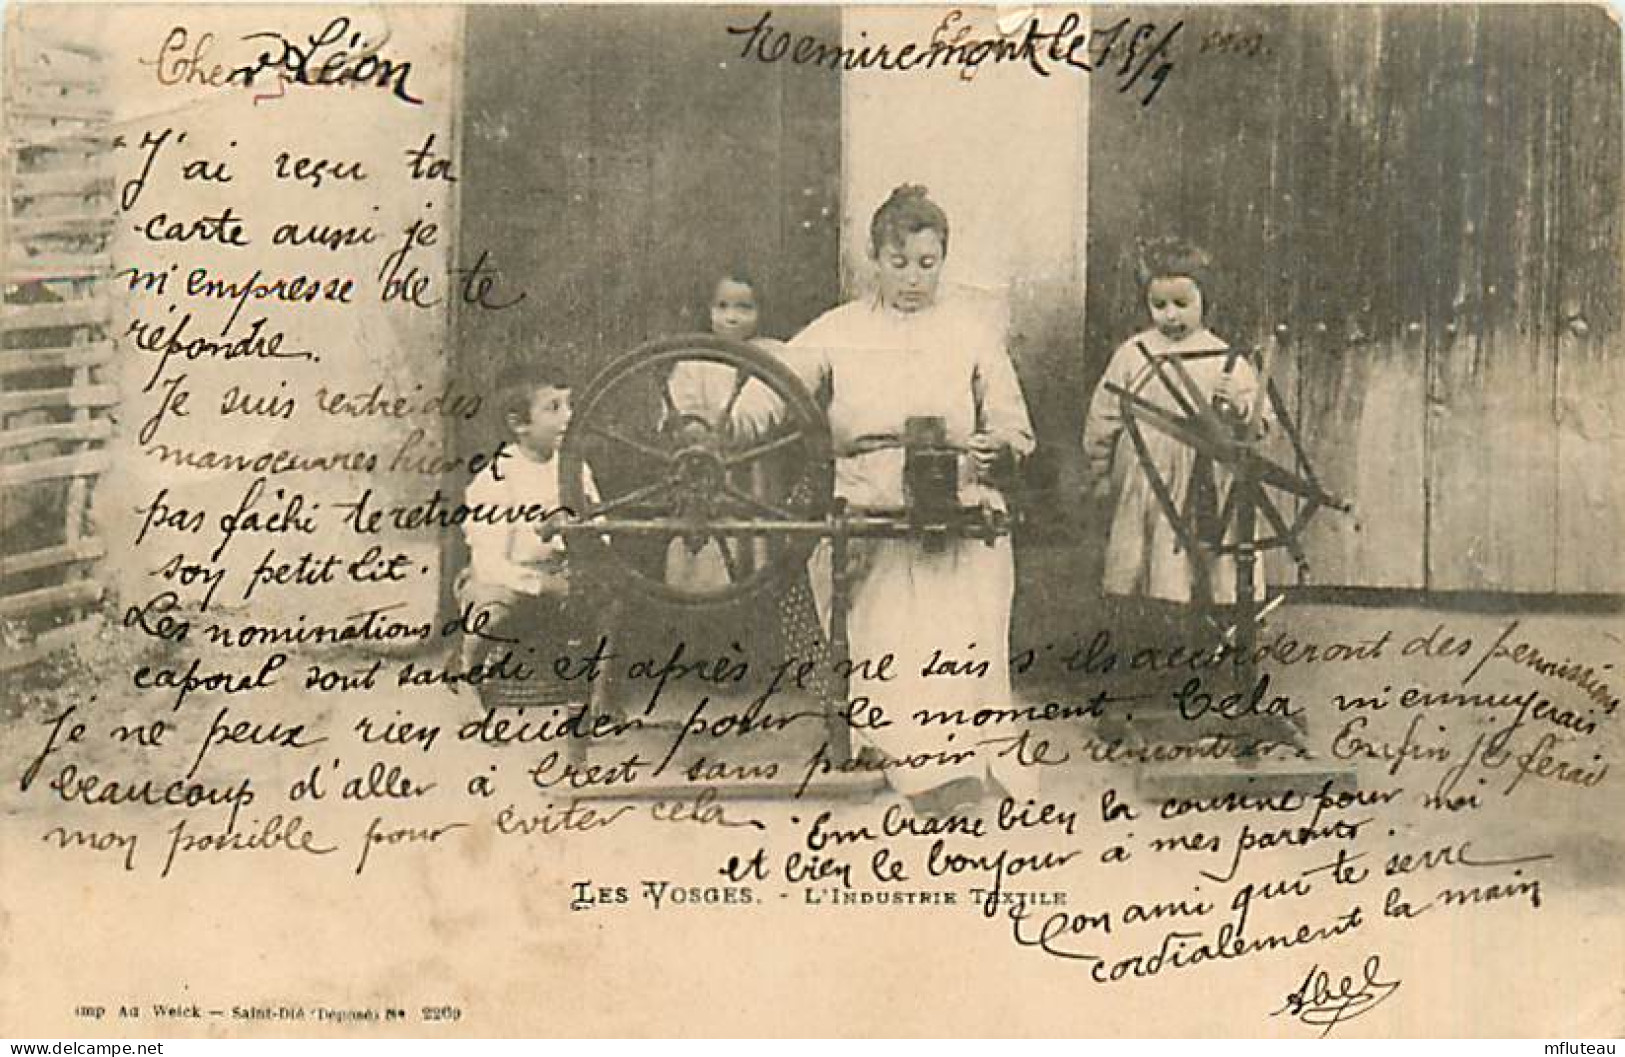 Cher Léon
Remiremont le 15/9
J'ai reçu ta
carte aussi je
m'empresse de te
répondre.
Je suis rentré des
manoeuvres hier et
pas fâché te retrouver
soy petit lit.
Les nominations de
caporal sont samedi et après je ne sais s'ils accorderont des permissions
Je ne peux riey décider pour le moment. Cela m'ennuyerais
beaucoup d'aller à Crest sans pouvoir te rencontrer. Enfin je ferai
moy possible pour éviter cela. Embrasse biey la cousine pour moi
et biey le bonjour à mes parents.
Ton ami qui te serre
cordialement la main
Abel
LES VOSGES. - L'INDUSTRIE TEXTILE
Imp Ad Weick — Saint-Dié (Déposé) No 2269
mfluteau